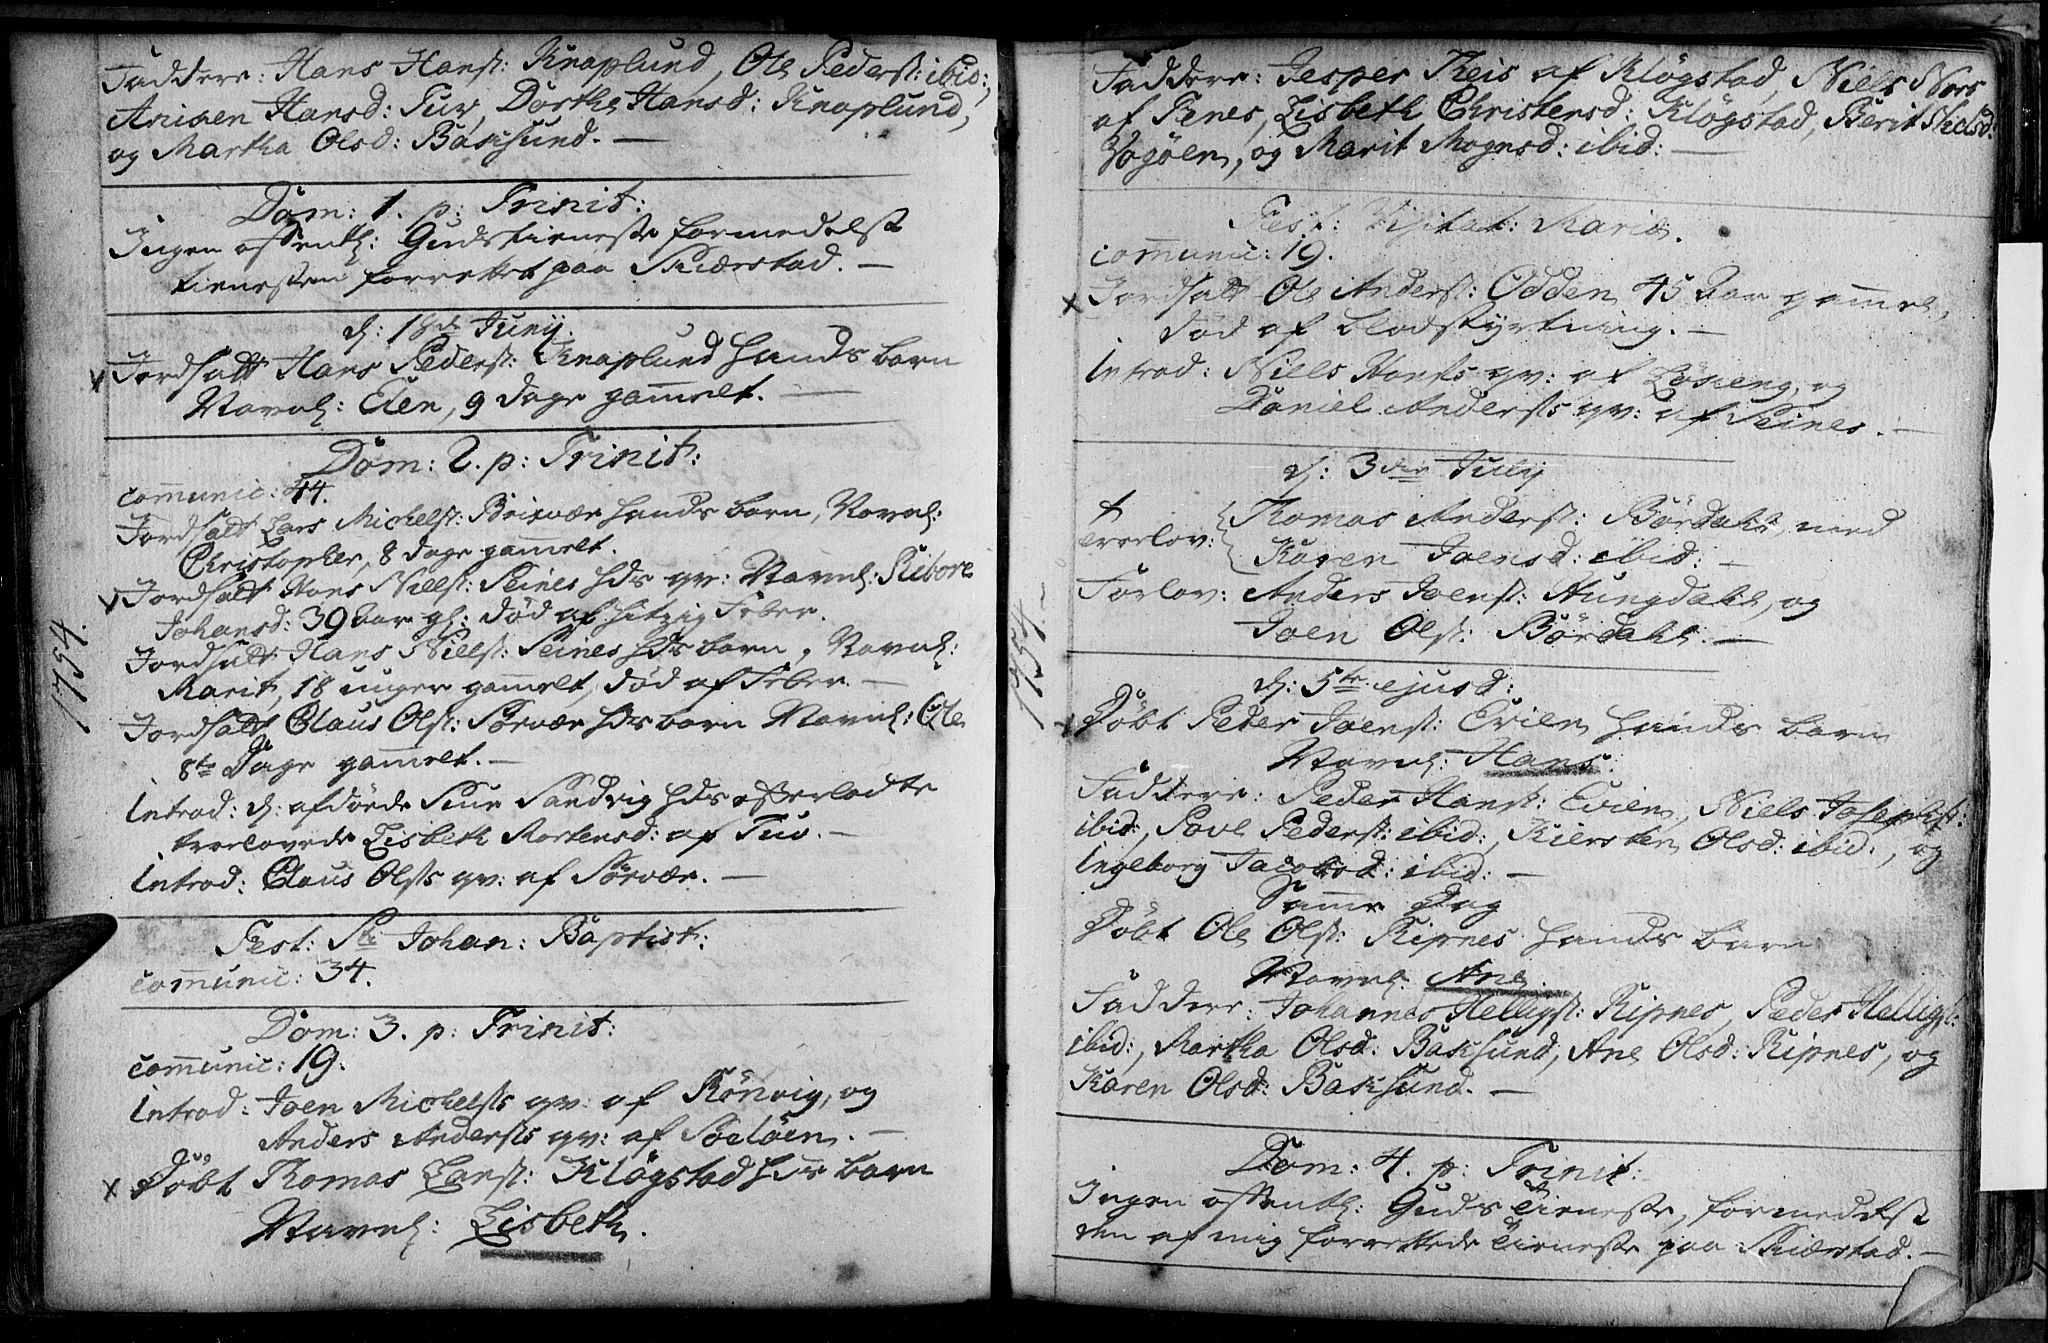 Faddere: Hans Hanß: Knaplund, Ole Pederß: ibid:,
Hansd: Tuv, Dorthe Hansd: Knaplund,
og Martha Olsd: Baksund. —
Dom: 1. p: Trinit:
Ingen offentl: Gudstieneste formedelst
tienesten forrettet paa Skierstad. —
d: 18de Junij.
Jordfatt Hans Pederß: Knaplund hands barn
Navnl: Elen, 9 dage gammelt. —
Dom: 2. p: Trinit:
communic: 44.
Jordfatt Lars Michelß: Brixvær hands barn, Navnl:
Christopher, 8 dage gammelt.
Jordfatt Hans Nielß: Seines hds qv: Navnl:
Johansd: 39 aar gl: død af hitzig Feber.
Jordfatt Hans Nielß: Seines hds barn, Navnl:
Marit, 18 uger gammelt, død af Feber. —
Jordfatt Claus Olß: Sørvær hds barn Navnl: Ole
8te Dage gammelt. —
Introd: d: afdøde Sandvig hds efterladte
trolovede Lisbeth Mortensd: af Tuv. —
Introd: Claus Olßs qv: af Sørvær. —
1754.
Fest: St: Johan: Baptist:
communic: 34.
Dom: 3. p: Trinit:
communic: 19.
Introd: Joen Michelßs qv: af Rønvig, og
Anders Anderßs qv: af Soeløen. —
x Døbt Thomas Larsß: Kløgstad hds barn
Navnl: Lisbeth.
Faddere: Jesper Theis af Kløgstad, Niels Nors
af Fenes, Lisbeth Christensd: Kløgstad, Berit
og Marit Mognsd: ibid: —
Fest: Visitat: Mariæ.
communic: 19.
x Jordfatt Ole Anderß: Odden, 45 aar gammel,
død af blodstyrtning. —
Introd: Niels Hanßs qv: af Løseng, og
Daniel Anderßs qv: af Seines. —
d: 3die Julij
trolov: Thomas Anderß: Børdahl, med
Karen Joensd: ibid: —
Forlov: Anders Joenß: Hungdahl, og
Joen Olß: Børdahl. —
1754 —
d: 5te ejusd:
Døbt Peder Joenß: Evien hands barn
Navnl: Hans.
Faddere: Peder Hanß: Evien, Niels Josephß:
ibid:, Povl Pederß: ibid:, Kiersten Olsd: ibid:, og
Ingeborg Jacobsd: ibid: —
Samme Dag
Døbt Ole Olß: Ripnes hands barn
Navnl: Ane.
Faddere: Johannes Helligß: Ripnes, Peder Helligß:
ibid:, Martha Olsd: Baksund, Ane Olsd: Ripnes, og
Karen Olsd: Baksund. —
Dom: 4. p: Trinit:
Ingen offentl: Guds Tieneste, formedelst
den af mig forrettede Tieneste paa Skierstad. —